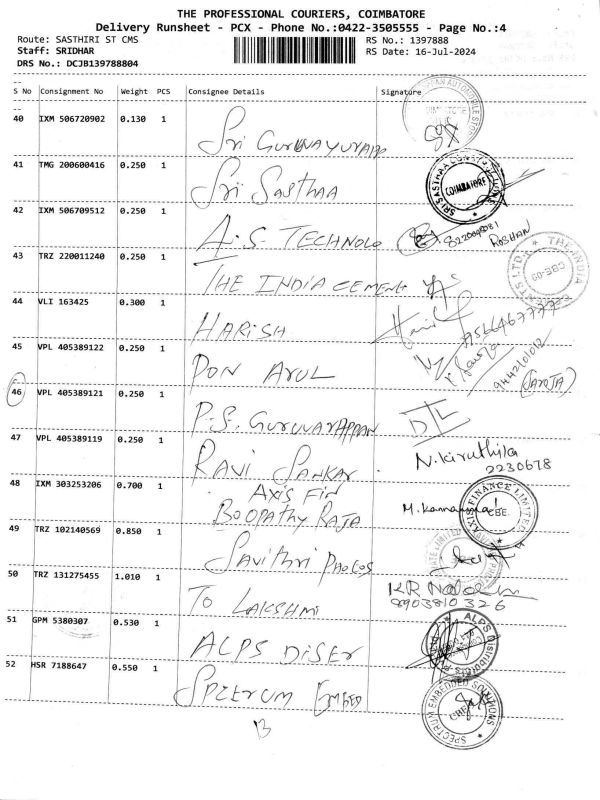 THE PROFESSIONAL COURIERS, COIMBATORE
Delivery Runsheet - PCX - Phone No.:0422-3505555 - Page No.:4
Route: SASTHIRI ST CMS
RS No.: 1397888
Staff: SRIDHAR
RS Date: 16-Jul-2024
DRS No.: DCJB139788804
S No Consignment No Weight PCS Consignee Details Signature
40 IXM 506720902 0.130 1
Sri Guruvayurapp
41 TMG 200600416 0.250 1
Sri Sasthaa
COIMBATORE
42 IXM 506709512 0.250 1
A.S. TECHNOLO
ROSHAN
43 TRZ 220011240 0.250 1
THE INDIA CEMENT
THE INDIA CEMENTS LTD. CBE-09
44 VLI 163425 0.300 1
HARISH
45 VPL 405389122 0.250 1
PON ARUL
9442101012
(SAROJA)
46 VPL 405389121 0.250 1
P.S. GURUVAYAPPAN
DL
47 VPL 405389119 0.250 1
RAVI SANKAR
N.Kiruthika
2230678
48 IXM 303253206 0.700 1
AXIS FIN
BOOPATHY RAJA
AXIS FINANCE LIMITED CBE.
49 TRZ 102140569 0.850 1
SAVITHRI PHOTOS
50 TRZ 131275455 1.010 1
TO LAKSHMI
8903810326
51 GPM 5380307 0.530 1
ALPS DISER
52 HSR 7188647 0.550 1
SPECTRUM EMBED
SPECTRUM EMBEDDED SOLUTIONS CBE
13